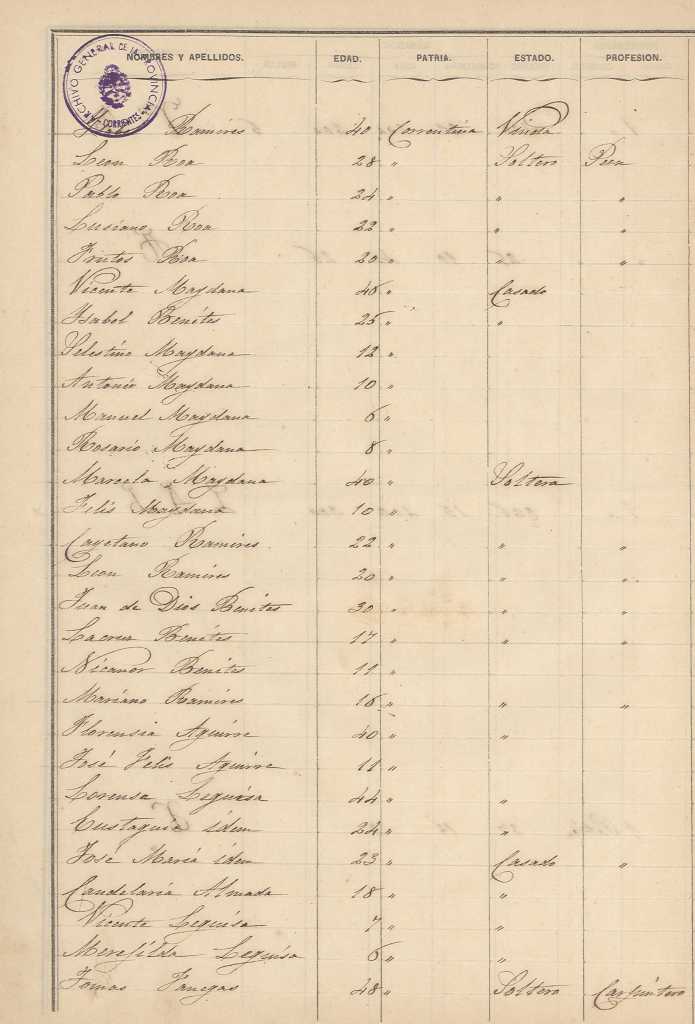 ARCHIVO GENERAL DE LA PROVINCIA
CORRIENTES
NOMBRES Y APELLIDOS. EDAD. PATRIA. ESTADO. PROFESION.
Ramires 40 Correntina Viuda
Leon Roa 28 " Soltero Peon
Pablo Roa 24 " " "
Lusiano Roa 22 " " "
Frutos Roa 20 " " "
Vicente Maydana 46 " Casado
Isabel Benites 25 " "
Selestino Maydana 12 "
Antonio Maydana 10 "
Manuel Maydana 6 "
Rosario Maydana 8 "
Marcela Maydana 40 " Soltera
Felis Maydana 10 "
Cayetano Ramires 22 " " "
Leon Ramires 20 " " "
Juan de Dios Benites 30 " " "
Lacruz Benites 17 " " "
Nicanor Benites 11 "
Mariano Ramires 16 " " "
Florensia Aguirre 40 " "
José Felis Aguirre 11 "
Lorensa Leguisa 44 " "
Eustaquia idem 24 " "
José Maria idem 23 " Casado "
Candelaria Almada 18 " "
Vicente Leguisa 7 " "
Leguisa 6 " "
Tomas Fanegas 48 " Soltero Carpintero